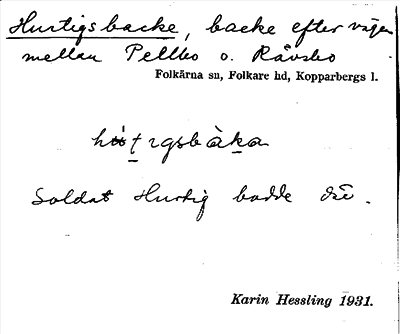 Hurtigsbacke, backe efter vägen
mellan Pellbo o. Råvsbo
Folkärna sn, Folkare hd, Kopparbergs l.
Soldat Hurtig bodde där.
Karin Hessling 1931.